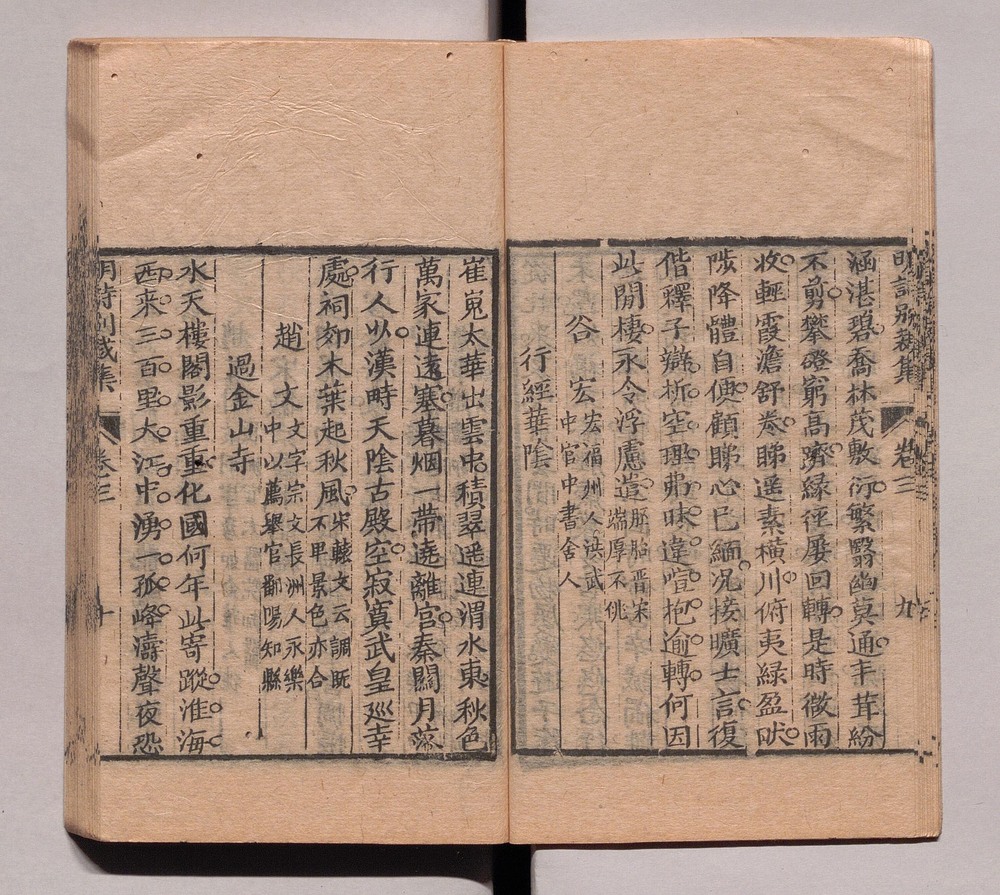 明詩別裁集 卷三 九
涵湛碧喬林茂敷衍繁翳幽莫通丰茸紛
不剪攀磴窮高躋緑徑屢回轉是時微雨
收輕霞澹舒卷睇遥素横川俯夷緑盈畎
陟降體自便顧睇心已緬况接曠士言復
偕釋子辯析空理弗昧違喧抱逾轉何因
此閒棲永令浮慮遣
胚胎晋宋
端厚不佻
谷宏
宏福州人洪武
中官中書舍人
行經華陰
崔嵬太華出雲中積翠遥連渭水東秋色
萬家連遠塞暮烟一帶遶離宫秦關月落
行人以漢時天陰古殿空寂寞武皇巡幸
處祠前木葉起秋風
宋轅文云調既
不卑景色亦合
趙文
文字宗文長洲人永樂
中以薦舉官鄱陽知縣
過金山寺
水天樓閣影重重化國何年此寄蹤淮海
西来三百里大江中湧一孤峰濤聲夜恐
明詩別裁集 卷三 十